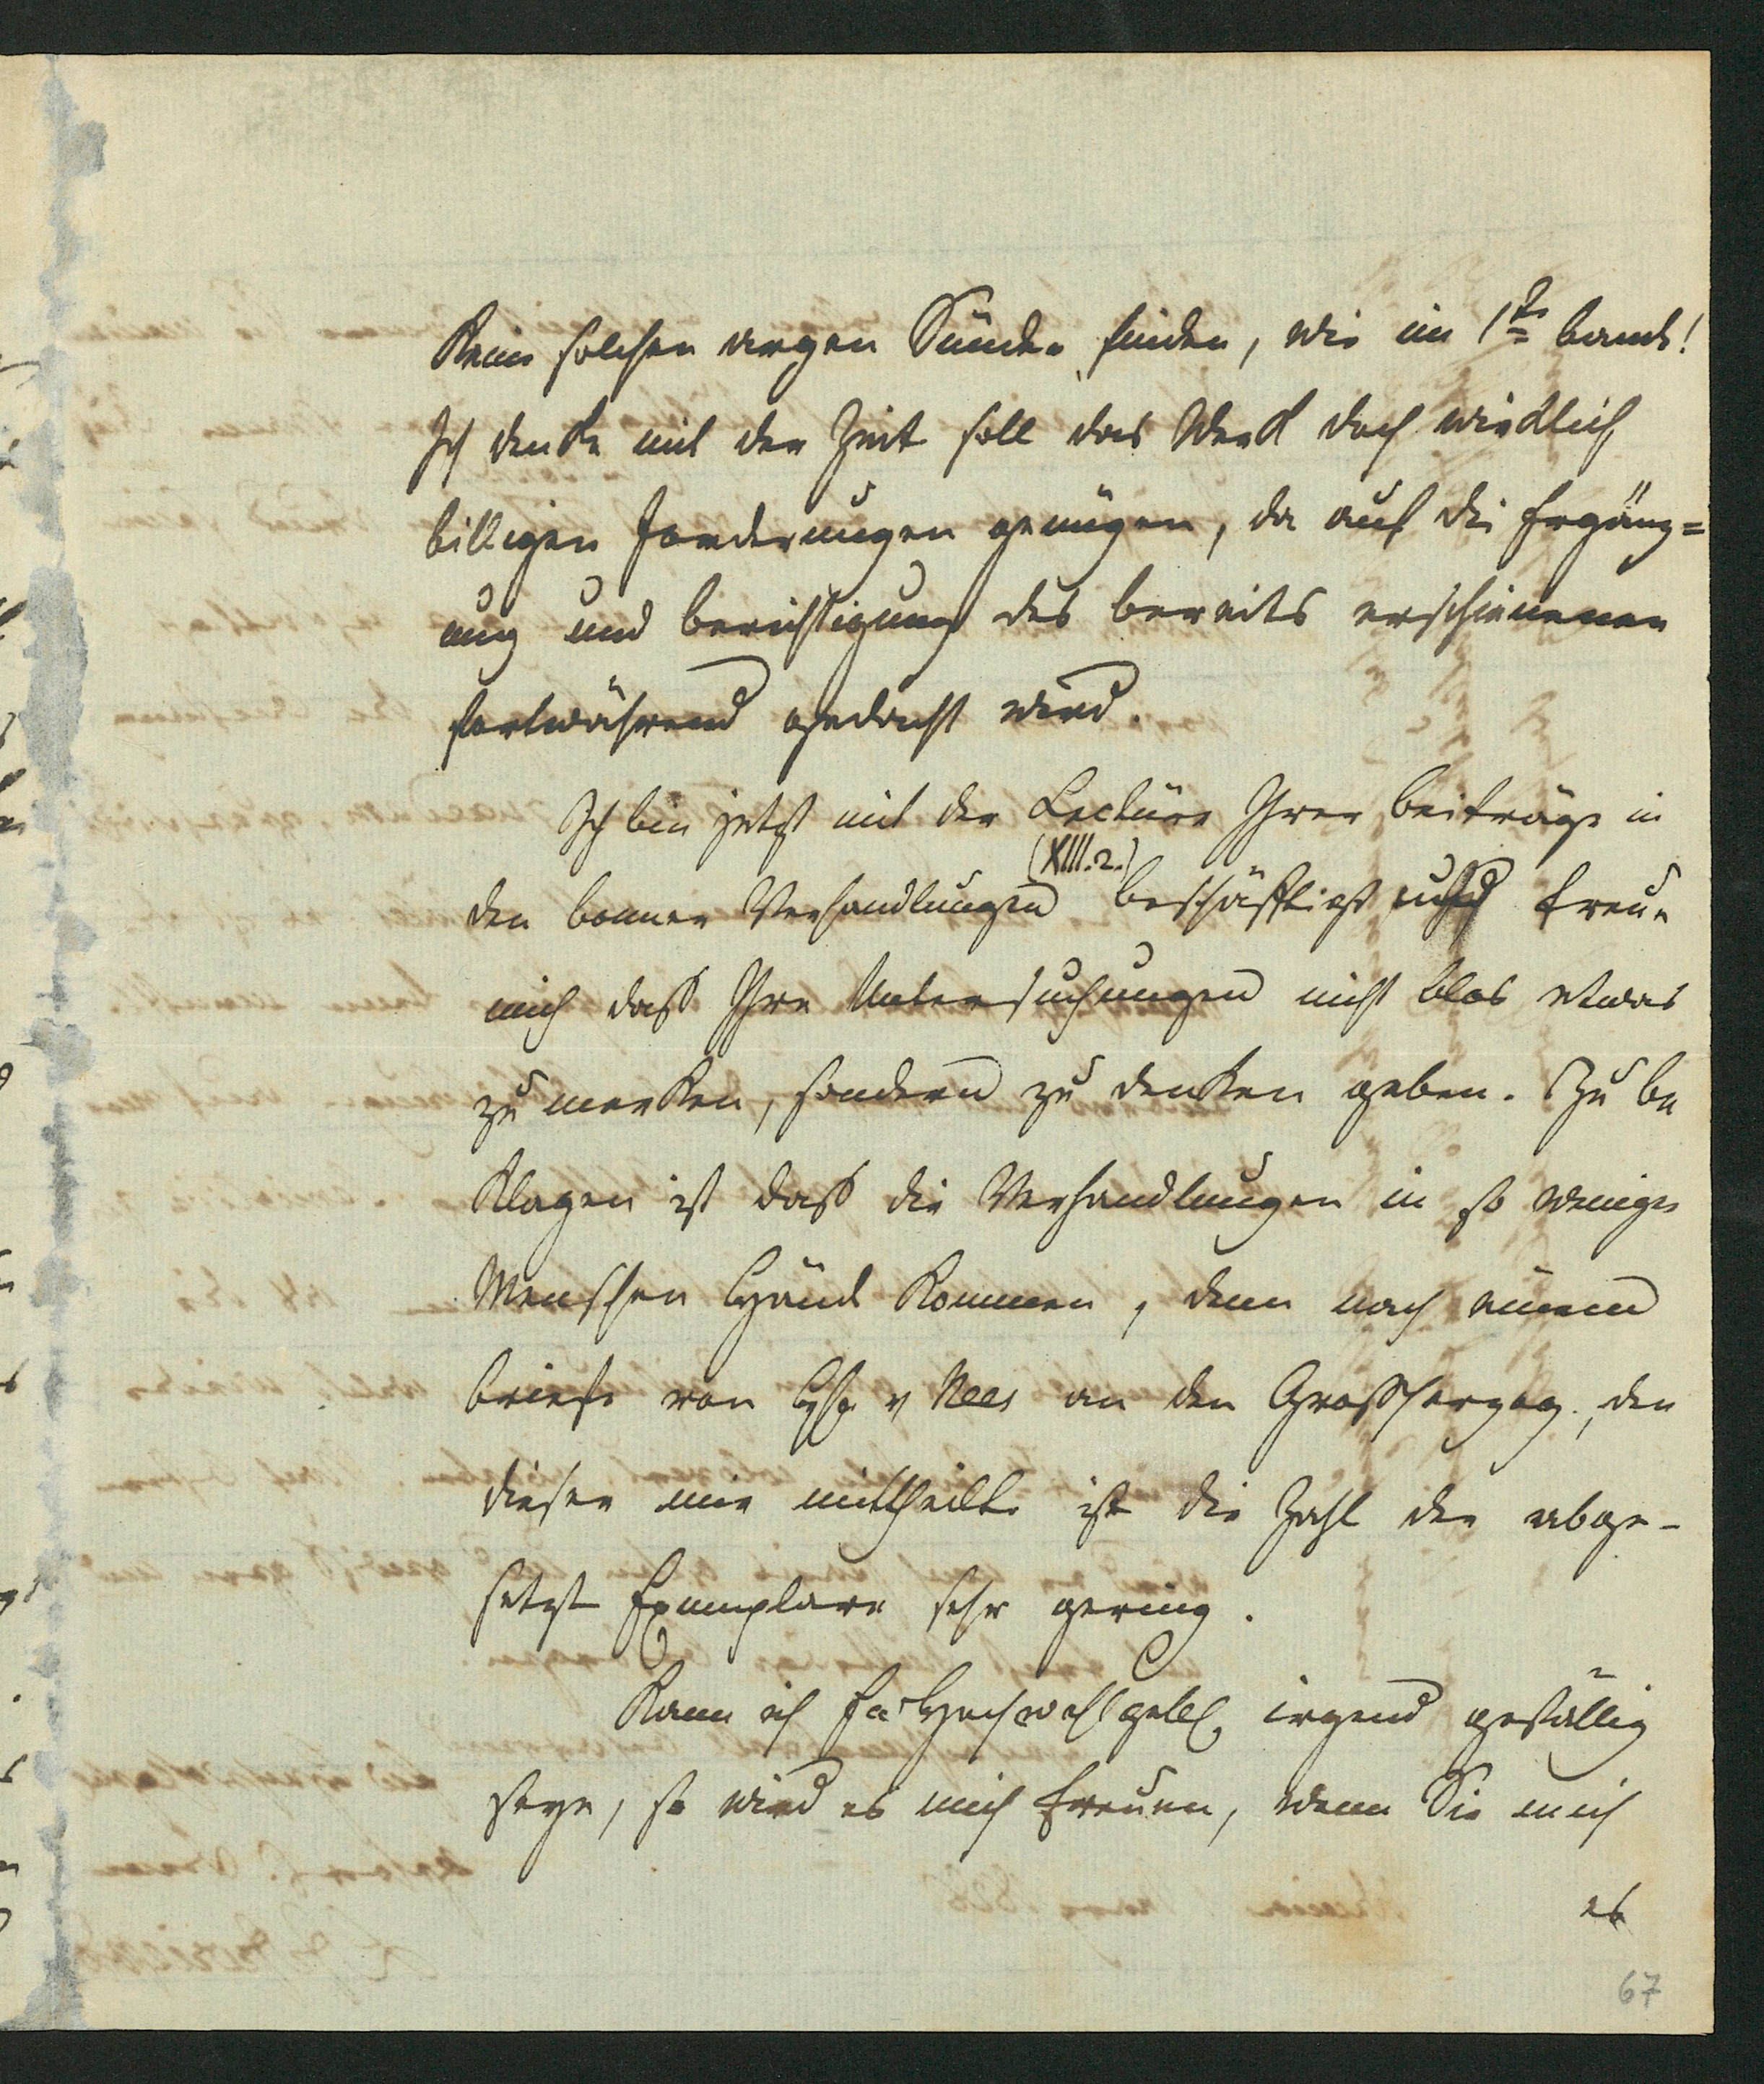 keine solchen argen Sünden finden, wie im 1ten bande!
Ich denke mit der Zeit soll das Werk doch wirklich
billigen Forderungen genügen, da auf die Ergänz=
ung und berichtigung des bereits erschienenen
fortwährend gedacht wird.
Ich bin jetzt mit der Lectüre Ihrer beiträge in
(XIII.2.)
den bonner Verhandlungen beschäftigt und freue
mich daß Ihre Untersuchungen nicht blos etwas
zu merken, sondern zu denken geben. Zu be
klagen ist daß die Verhandlungen in so weniger
Menschen Hände kommen, denn nach einem
briefe von H v Nees an den Großherzog, den
dieser mir mittheilte ist die Zahl der abge-
setzt Exemplare sehr gering.
Kann ich Ew Hochwohlgeb irgend gefällig
seyn, so wird es mich freuen, wenn Sie mich
es
67